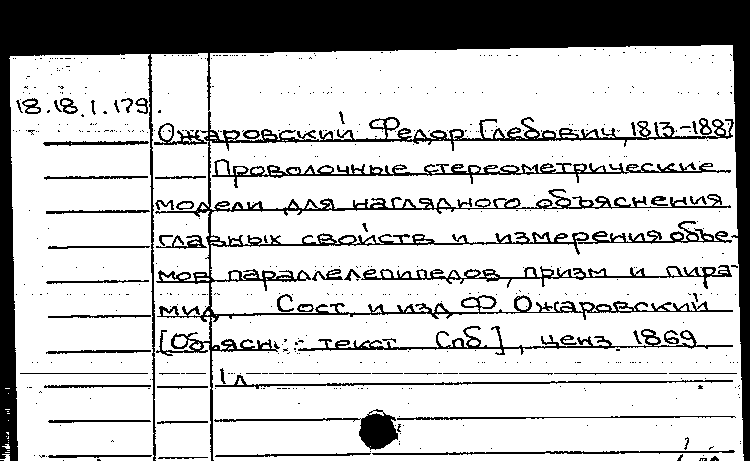 18.18.1.179.
Ожаровский Федор Глебович, 1813-1887
Проволочные стереометрические
модели для наглядного объяснения
главных свойств и измерения объе-
мов параллелепипедов, призм и пира-
мид. Сост. и изд. Ф. Ожаровский
[Объясн. текст Спб.], ценз. 1869.
1 л.